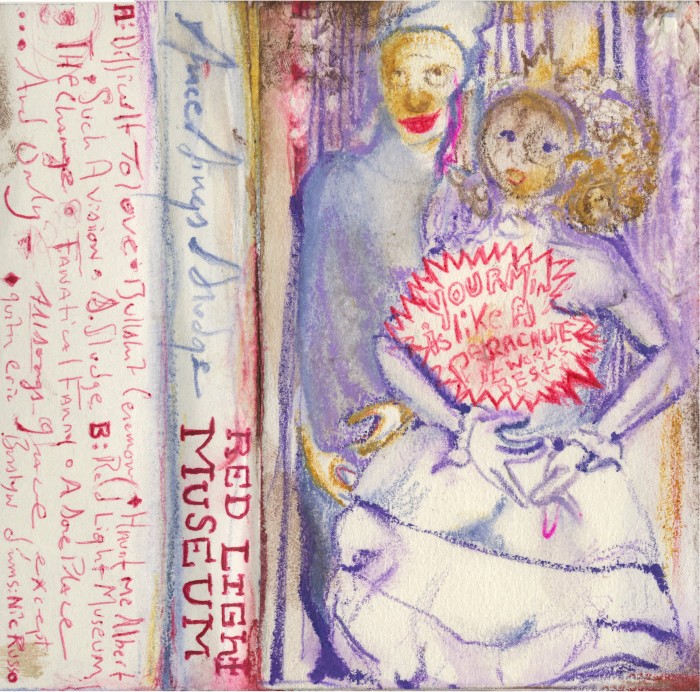 A: Difficult To love • Bullshit Ceremony • Haunt me Albert
• Such A vision • A. Sludge B: Red Light Museum,
• THe Change • Fanatical Fanny • A Place
••• And Only • All songs grace, except
eric drums: Nic Russo
Grace Sings Sludge
RED LIGHt
MUSEUM
YOUR MIN
iS LiKE A
PERACHUTE
IT WORKS
BEST